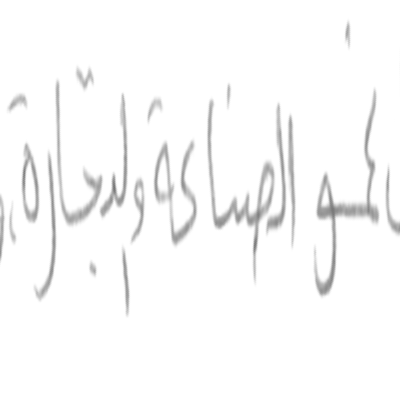 الصناعة والتجارة